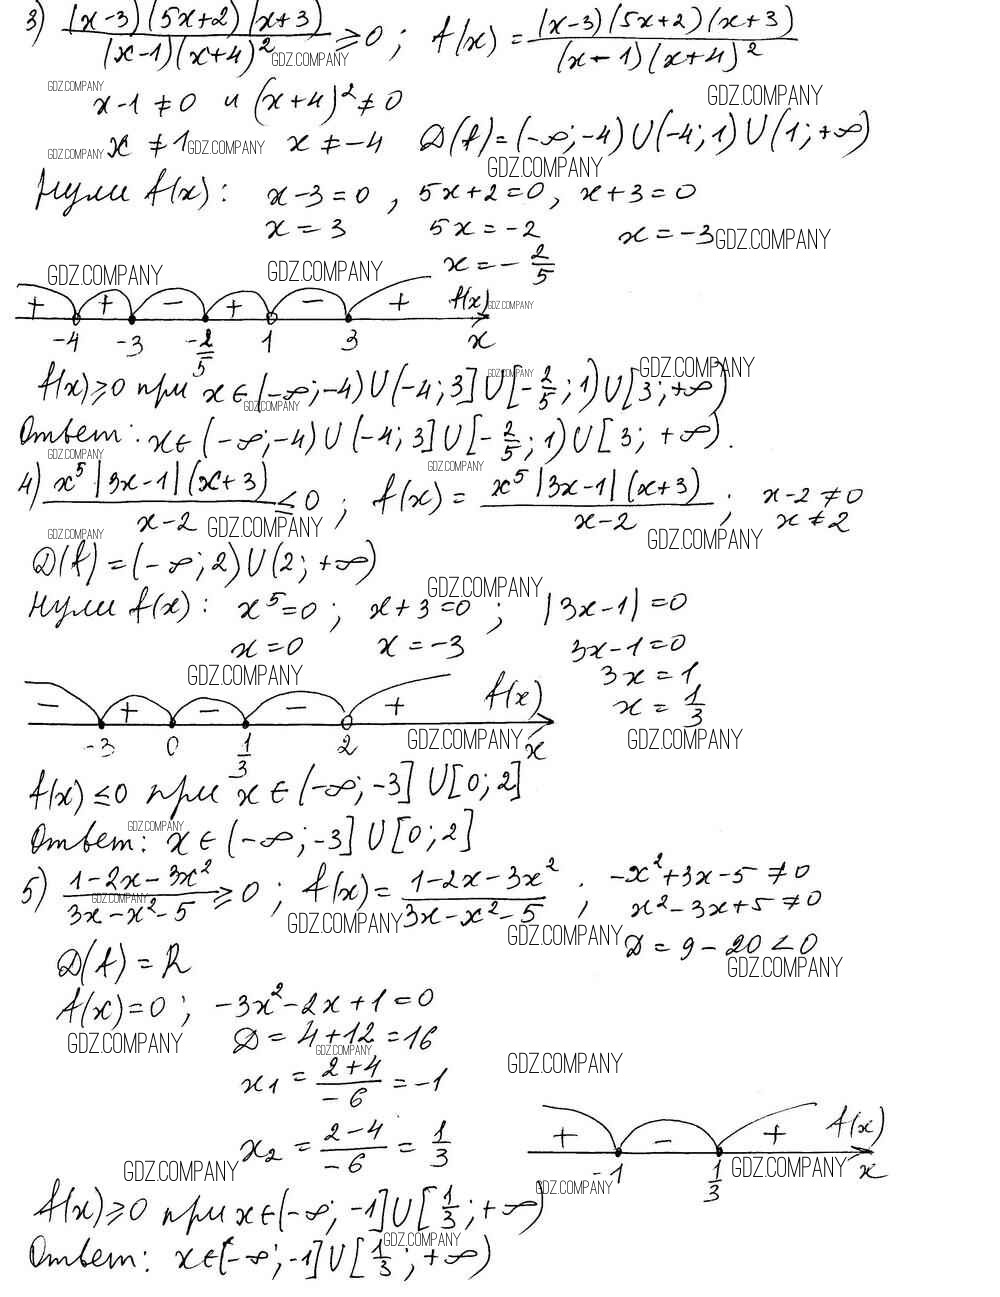 3) (x-3)(5x+2)(x+3) / (x-1)(x+4)² ≥ 0 ; f(x) = (x-3)(5x+2)(x+3) / (x-1)(x+4)²
GDZ.COMPANY
GDZ.COMPANY
x-1≠0 и (x+4)²≠0
GDZ.COMPANY
x ≠ 1 x ≠ -4 D(f)=(-∞;-4)∪(-4;1)∪(1;+∞)
GDZ.COMPANY GDZ.COMPANY
GDZ.COMPANY
Нули f(x): x-3=0, 5x+2=0, x+3=0
x=3 5x=-2 x=-3
GDZ.COMPANY
x=-2/5
GDZ.COMPANY GDZ.COMPANY
+ + - + - + f(x)
GDZ.COMPANY
-4 -3 -2/5 1 3 x
GDZ.COMPANY
GDZ.COMPANY
f(x)≥0 при x∈(-∞;-4)∪(-4;3]∪[-2/5;1)∪[3;+∞)
GDZ.COMPANY
Ответ: x∈(-∞;-4)∪(-4;3]∪[-2/5;1)∪[3;+∞).
GDZ.COMPANY
GDZ.COMPANY
4) x⁵|3x-1|(x+3) / x-2 ≤ 0 ; f(x) = x⁵|3x-1|(x+3) / x-2 ; x-2≠0
x≠2
GDZ.COMPANY GDZ.COMPANY GDZ.COMPANY
D(f)=(-∞;2)∪(2;+∞)
GDZ.COMPANY
Нули f(x): x⁵=0; x+3=0; |3x-1|=0
x=0 x=-3 3x-1=0
GDZ.COMPANY
3x=1
x=1/3
- + - - + f(x)
GDZ.COMPANY GDZ.COMPANY
-3 0 1/3 2 x
f(x)≤0 при x∈(-∞;-3]∪[0;2]
GDZ.COMPANY
Ответ: x∈(-∞;-3]∪[0;2]
5) 1-2x-3x² / 3x-x²-5 ≥ 0 ; f(x) = 1-2x-3x² / 3x-x²-5 ; -x²+3x-5≠0
x²-3x+5≠0
GDZ.COMPANY
GDZ.COMPANY GDZ.COMPANY
D=9-20<0
D(f)=R
GDZ.COMPANY
f(x)=0; -3x²-2x+1=0
D=4+12=16
GDZ.COMPANY
GDZ.COMPANY
GDZ.COMPANY
x1 = 2+4 / -6 = -1
x2 = 2-4 / -6 = 1/3
+ - + f(x)
-1 1/3 x
GDZ.COMPANY GDZ.COMPANY
GDZ.COMPANY
f(x)≥0 при x∈(-∞;-1]∪[1/3;+∞)
GDZ.COMPANY
Ответ: x∈(-∞;-1]∪[1/3;+∞)